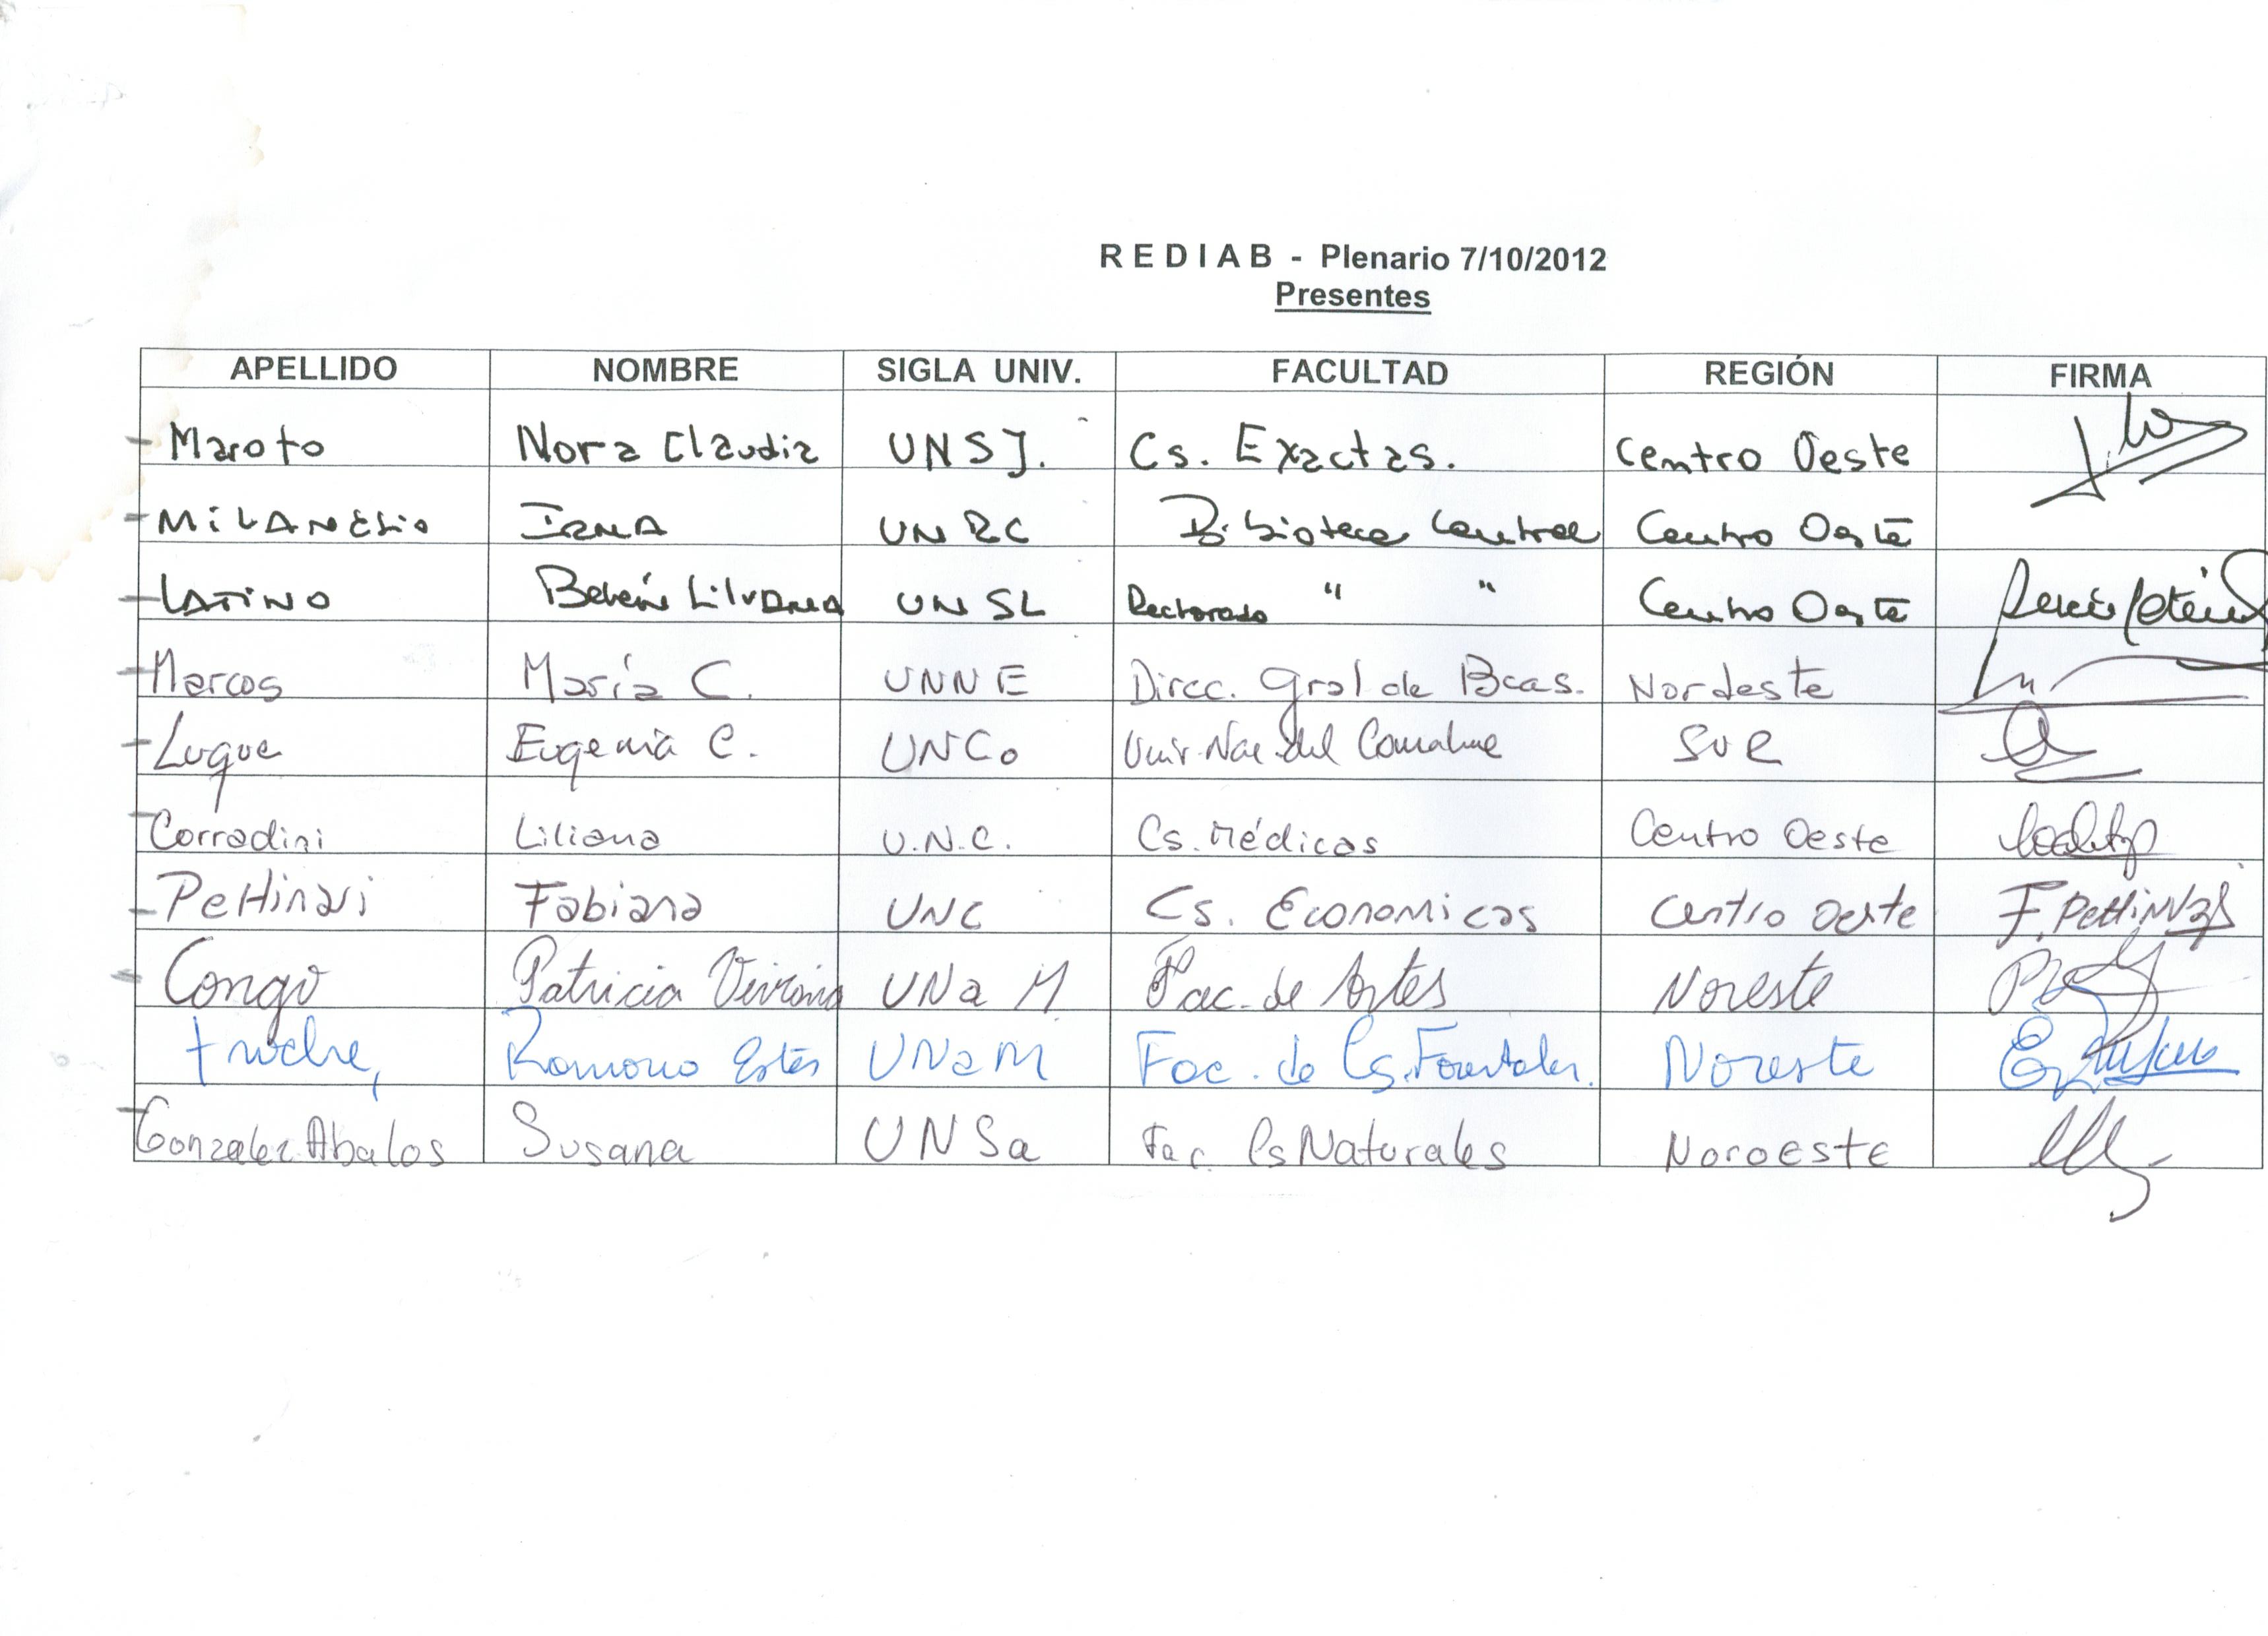 R E D I A B - Plenario 7/10/2012
Presentes
APELLIDO NOMBRE SIGLA UNIV. FACULTAD REGIÓN FIRMA
- Maroto Nora Claudia UNSJ. Cs. Exactas. Centro Oeste
- MILANESIO IRMA UNRC Biblioteca Central Centro Oeste
- LATINO Belén Liliana UNSL Rectorado " " Centro Oeste
- Marcos María C. UNNE Direc. Gral de Bcas. Nordeste
- Luque Eugenia C. UNCo Univ. Nac. del Comahue SUR
- Corradini Liliana U.N.C. Cs. Médicas Centro Oeste
- Pettinari Fabiana UNC Cs. Economicas Centro Oeste F. Pettinari
- Congo Patricia Viviana UNaM Fac. de Artes Noreste
Ramona UNaM Fac. de Cs. Forestales. Noreste
- Gonzalez Abalos Susana UNSa Fac. Cs Naturales Noroeste